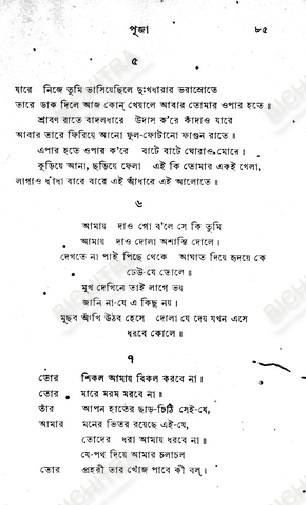 পূজা ৮৫
৫
যারে নিজে তুমি ভাসিয়েছিলে দুঃখধারার ভরাস্রোতে
তারে ডাক দিলে আজ কোন্ খেয়ালে আবার তোমার ওপার হতে॥
শ্রাবণ রাতে বাদলধারে উদাস ক'রে কাঁদাও যারে
আবার তারে ফিরিয়ে আনো ফুল-ফোটানো ফাগুন রাতে॥
এপার হতে ওপার ক'রে বাটে বাটে ঘোরাও মোরে।
কুড়িয়ে আনা, ছড়িয়ে ফেলা এই কি তোমার একই খেলা,
লাগাও ধাঁধা বারে বারে এই আঁধারে এই আলোতে॥
৬
আমায় দাও গো ব'লে সে কি তুমি
আমায় দাও দোলা অশান্তি দোলে।
দেখতে না পাই পিছে থেকে আঘাত দিয়ে হৃদয়ে কে
ঢেউ-যে তোলে॥
মুখ দেখিনে তাই লাগে ভয়
জানি না-যে এ কিছু নয়।
মুছব আঁখি উঠব হেসে দোলা যে দেয় যখন এসে
ধরবে কোলে॥
৭
তোর শিকল আমায় বিকল করবে না॥
তোর মারে মরম মরবে না।
তাঁর আপন হাতের ছাড়-চিঠি সেই-যে,
আমার মনের ভিতর রয়েছে এই-যে,
তোদের ধরা আমায় ধরবে না॥
যে-পথ দিয়ে আমার চলাচল
তোর প্রহরী তার খোঁজ পাবে কী বল্।